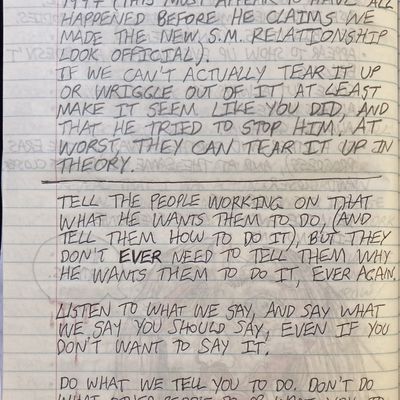 1997 (THIS MUST APPEAR TO HAVE ALL
HAPPENED BEFORE HE CLAIMS WE
MADE THE NEW S.M. RELATIONSHIP
LOOK OFFICIAL).
IF WE CAN'T ACTUALLY TEAR IT UP
OR WRIGGLE OUT OF IT, AT LEAST
MAKE IT SEEM LIKE YOU DID, AND
THAT HE TRIED TO STOP HIM, AT
WORST THEY CAN TEAR IT UP IN
THEORY.
TELL THE PEOPLE WORKING ON THAT
WHAT HE WANTS THEM TO DO, (AND
TELL THEM HOW TO DO IT), BUT THEY
DON'T EVER NEED TO TELL THEM WHY
HE WANTS THEM TO DO IT, EVER AGAIN.
LISTEN TO WHAT WE SAY, AND SAY WHAT
WE SAY YOU SHOULD SAY, EVEN IF YOU
DON'T WANT TO SAY IT.
DO WHAT WE TELL YOU TO DO. DON'T DO
WHAT OTHER PEOPLE DO OR WANT YOU TO